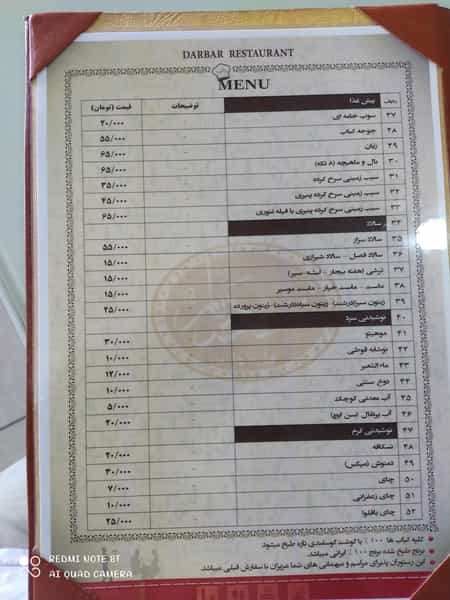 DARBAR RESTAURANT
MENU
ردیف پیش غذا توضیحات قیمت (تومان)
۲۷ سوپ خامه ای - ۲۰/۰۰۰
۲۸ جوجه کباب - ۵۵/۰۰۰
۲۹ زبان - ۶۵/۰۰۰
۳۰ بال و ماهیچه (۸ تکه) - ۶۵/۰۰۰
۳۱ سیب زمینی سرخ کرده - ۳۵/۰۰۰
۳۲ سیب زمینی سرخ کرده پنیری - ۴۵/۰۰۰
۳۳ سیب زمینی سرخ کرده پنیری با فیله تنوری - ۶۵/۰۰۰
۳۴ سالاد
۳۵ سالاد سزار - ۵۵/۰۰۰
۳۶ سالاد فصل - سالاد شیرازی - ۱۵/۰۰۰
۳۷ ترشی (هفته بیجار - لیته - سیر) - ۱۵/۰۰۰
۳۸ ماست - ماست خیار - ماست موسیر - ۱۵/۰۰۰
۳۹ زیتون پرورده - ۲۵/۰۰۰
۴۰ نوشیدنی سرد
۴۱ موهیتو - ۳۰/۰۰۰
۴۲ نوشابه قوطی - ۱۰/۰۰۰
۴۳ ماءالشعیر - ۱۲/۰۰۰
۴۴ دوغ سنتی - ۱۰/۰۰۰
۴۵ آب معدنی کوچک - ۵/۰۰۰
۴۶ آب پرتقال (سن ایچ) - ۲۰/۰۰۰
۴۷ نوشیدنی گرم
۴۸ نسکافه - ۲۰/۰۰۰
۴۹ دمنوش (میکس) - ۳۰/۰۰۰
۵۰ چای - ۷/۰۰۰
۵۱ چای زعفرانی - ۱۰/۰۰۰
۵۲ چای باقلوا - ۲۵/۰۰۰
• کلیه کباب ها ۱۰۰٪ با گوشت گوسفندی تازه طبخ میشود.
• برنج طبخ شده برنج ۱۰۰٪ ایرانی میباشد.
• این رستوران پذیرای مراسم و میهمانی های شما عزیزان با سفارش قبلی میباشد.
REDMI NOTE 8T
AI QUAD CAMERA